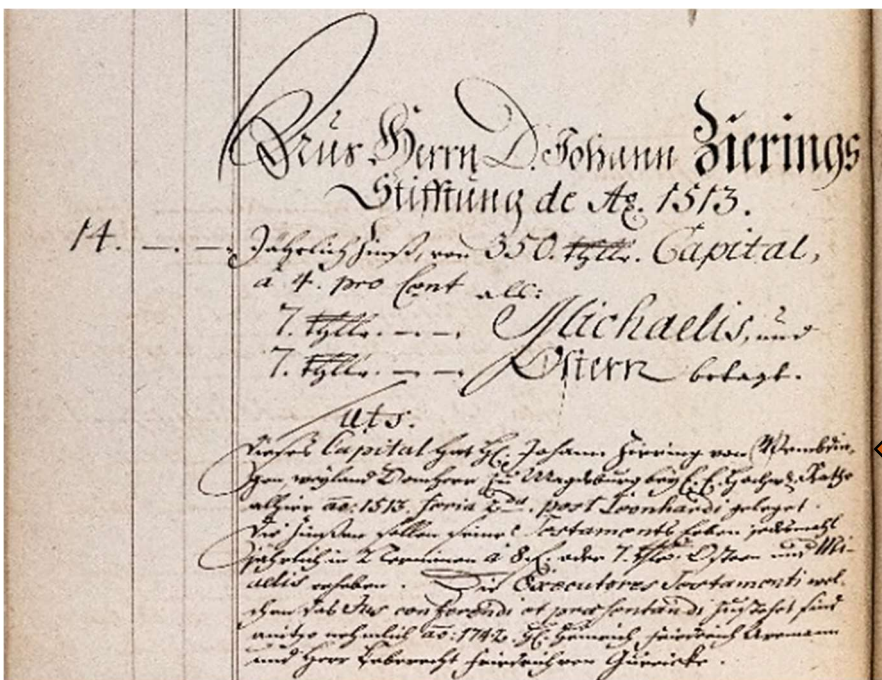 Aus Herrn D. Johann Zierings
Stifftung de Ao. 1513.
14. — . — . Jährlich Zinß, von 350. Thllr. Capital,
â 4. pro Cent als:
7. Thllr. — — . Michaelis, und
7. Thllr. — — . Ostern betagt.
Dieses Capital hat H. Johann Ziering von Wembdin-
gen weyland Domherr zu Magdeburg bey E. E. Hochw. Rathe
allhier ao: 1513. feria 2da. post Leonhardi geleget.
Die Zinßen sollen seines Testaments Erben jedesmahl
jährlich in 2 Terminen â 7. Thlr. Ostern und Mi-
aelis erheben. Die Executores Testamenti wel-
chen das Jus conferendi et praesentandi zustehet sind
anitzo nehmlich ao: 1742. H. Heinrich Friedrich
und Herr Leberecht Friedrich von Guericke.